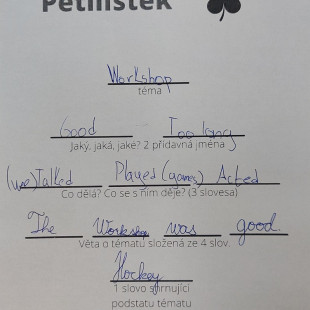 Pětilístek
Workshop
téma
Good Too long
Jaký, jaká, jaké? 2 přídavná jména
(we) Talked Played (games) Acted
Co dělá? Co se s ním děje? (3 slovesa)
The Workshop was good.
Věta o tématu složená ze 4 slov.
Hockey
1 slovo shrnující
podstatu tématu